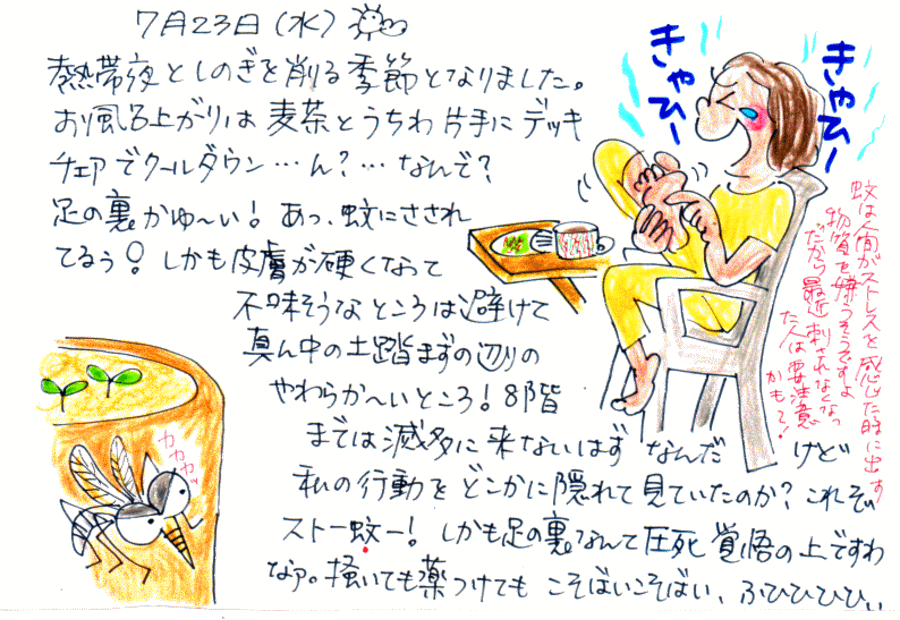 7月23日(水)
熱帯夜としのぎを削る季節となりました。
お風呂上がりは麦茶とうちわ片手にデッキ
チェアでクールダウン…ん?…なんで?
足の裏かゆ〜い!あっ、蚊にさされ
てるぅ!しかも皮膚が硬くなって
不味そうなところは避けて
真ん中の土踏まずの辺りの
やわらか〜いところ!8階
までは滅多に来ないはずなんだけど
私の行動をどこかに隠れて見ていたのか?これぞ
ストー蚊ー!しかも足の裏なんて圧死覚悟の上ですわ
なァ。掻いても薬つけてもこそばいこそばい、ふひひひひぃ
きゃひー
きゃひー
蚊は人間がストレスを感じた時に出す
物質を嫌うそうですよ
だから最近刺されなくなっ
た人は要注意
かもて!
カカカッ